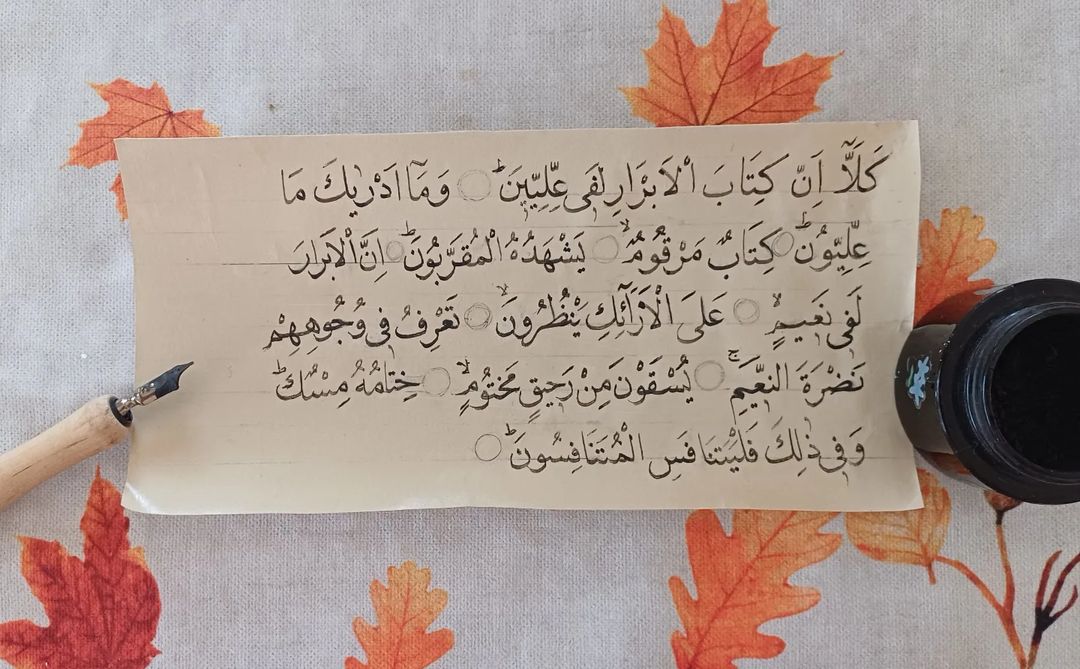 كَلَّآ اِنَّ كِتَابَ الْاَبْرَارِ لَفِى عِلِّيِّينَۜ ○ وَمَٓا اَدْرٰيكَ مَا
عِلِّيُّونَۜ ○ كِتَابٌ مَرْقُومٌۙ ○ يَشْهَدُهُ الْمُقَرَّبُونَۜ ○ اِنَّ الْاَبْرَارَ
لَفِى نَعِيمٍۙ ○ عَلَى الْاَرَٓائِكِ يَنْظُرُونَۙ ○ تَعْرِفُ فِى وُجُوهِهِمْ
نَضْرَةَ النَّعِيمِۚ ○ يُسْقَوْنَ مِنْ رَحِيقٍ مَخْتُومٍۙ ○ خِتَامُهُ مِسْكٌۜ
وَفِى ذٰلِكَ فَلْيَتَنَافَسِ الْمُتَنَافِسُونَۜ ○